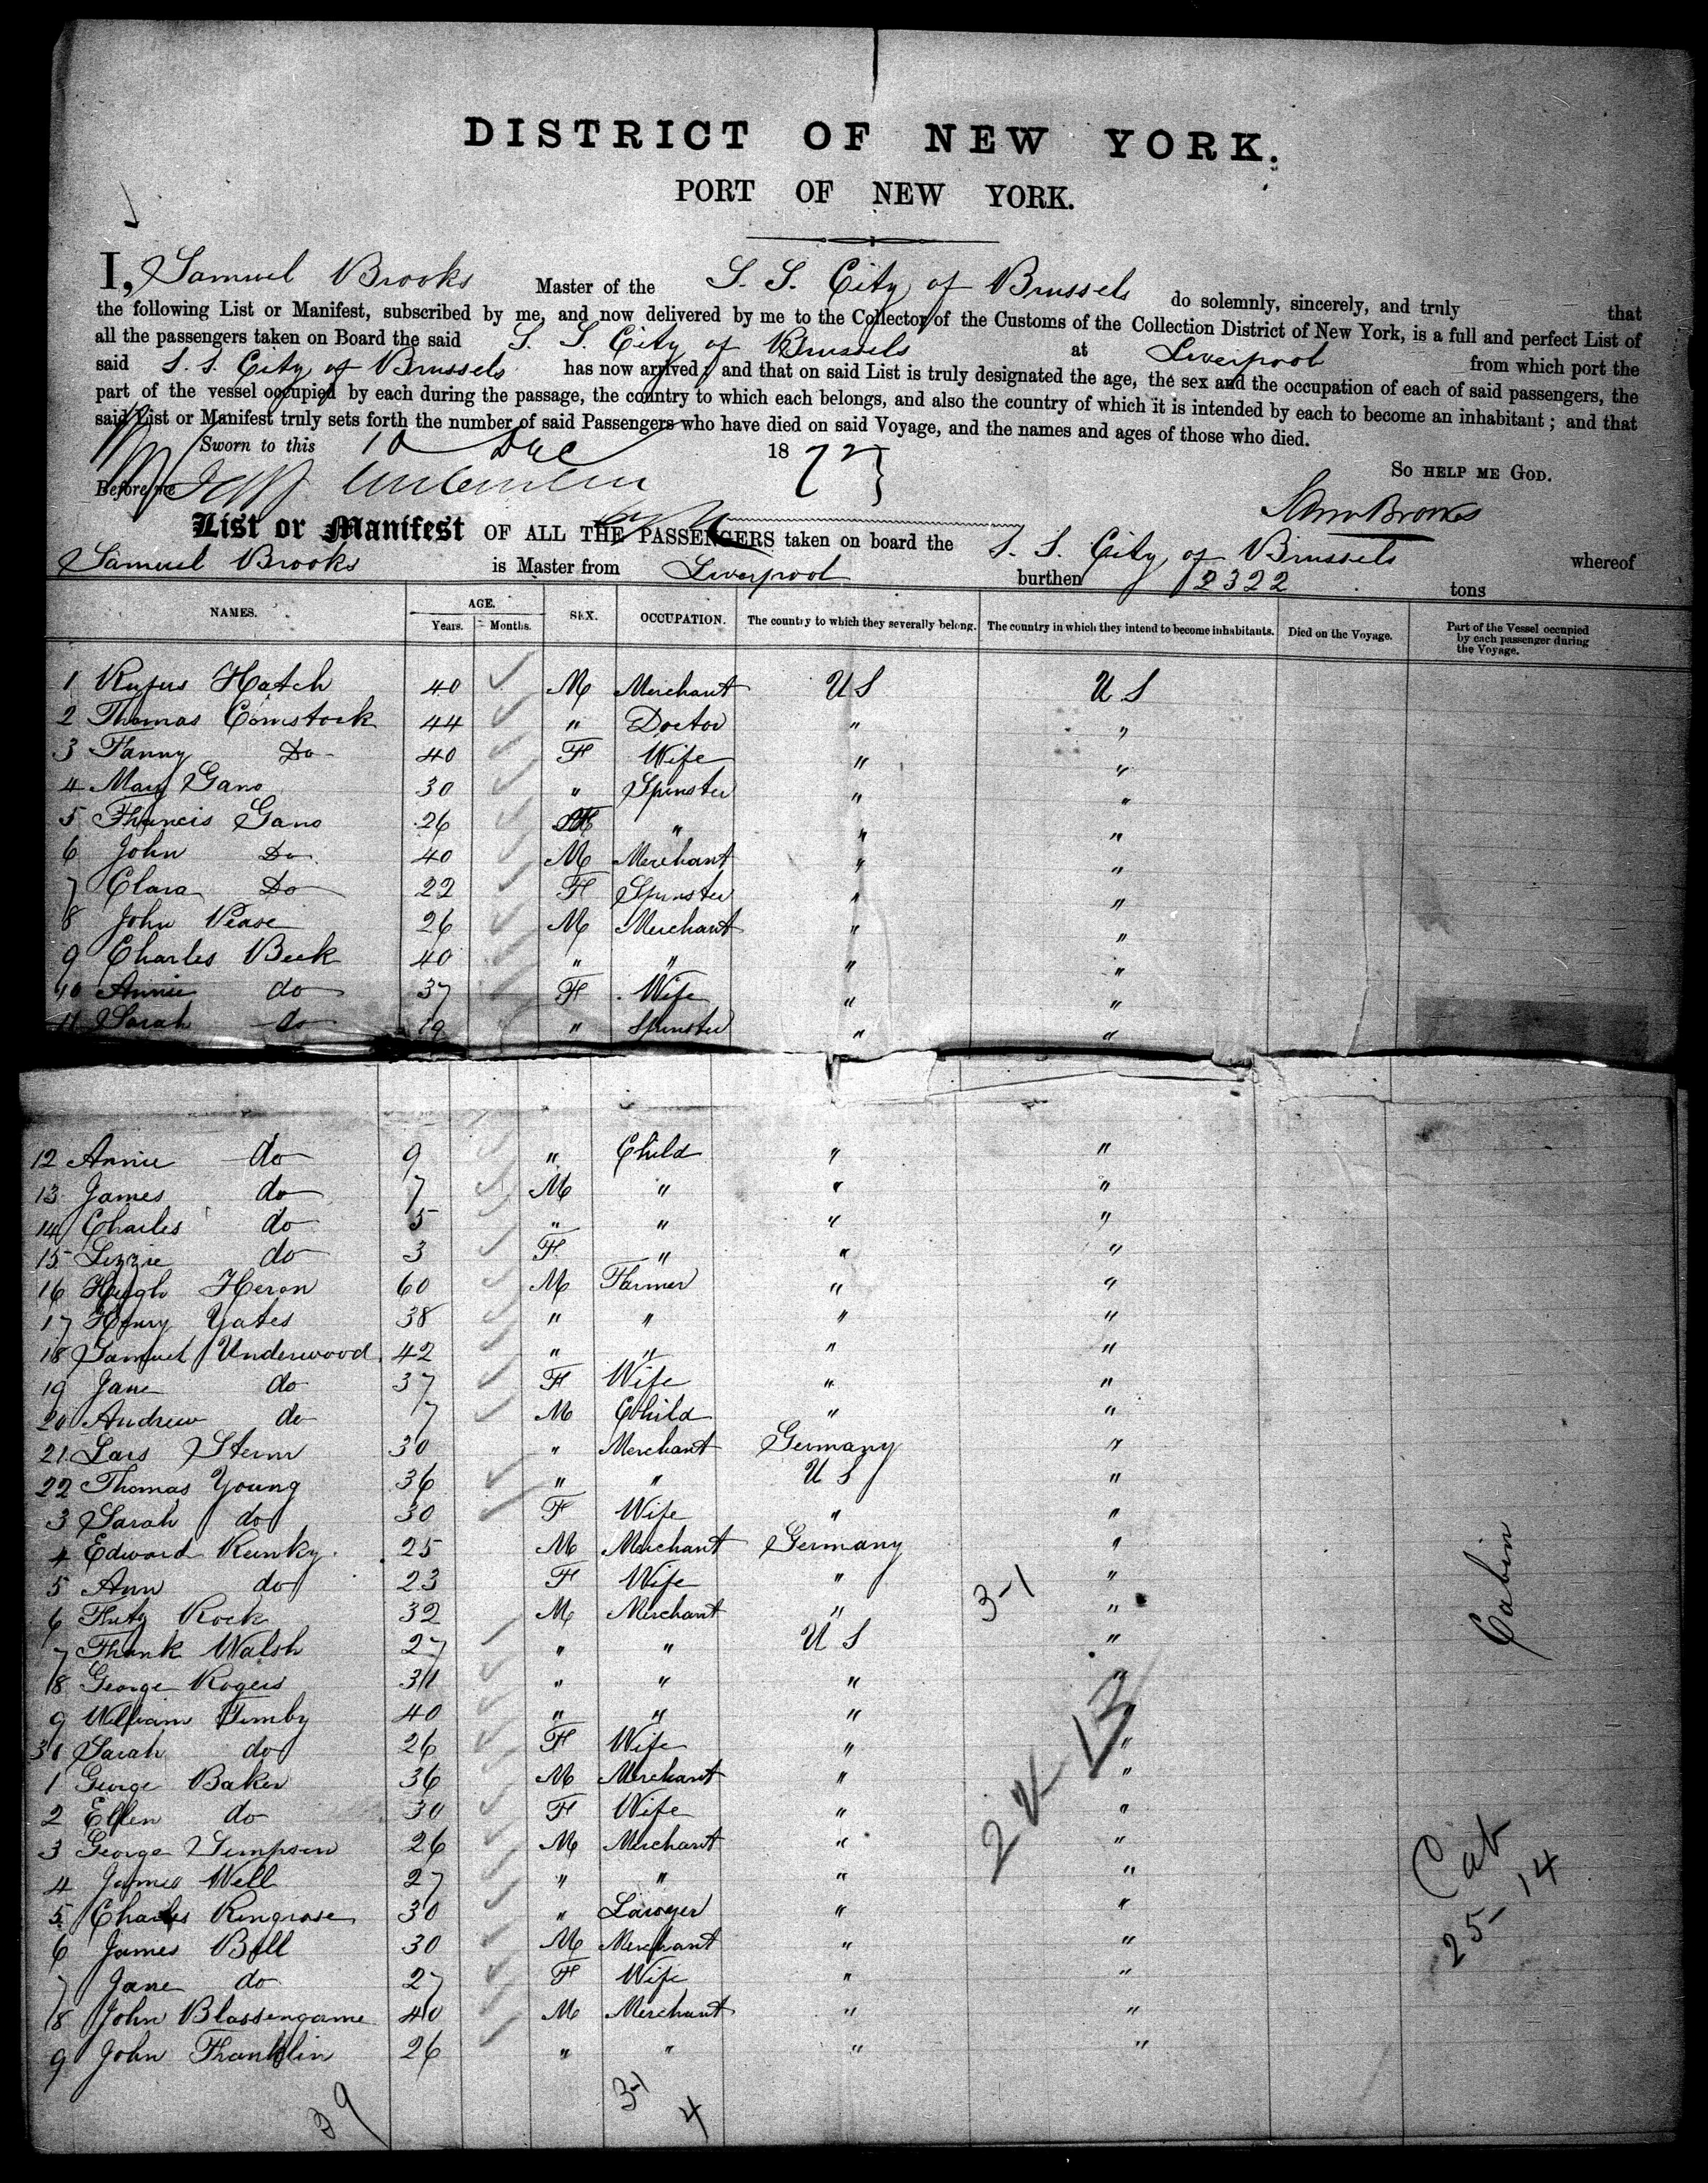 DISTRICT OF NEW YORK.
PORT OF NEW YORK.
I, Samuel Brooks Master of the S. S. City of Brussels do solemnly, sincerely, and truly that
the following List or Manifest, subscribed by me, and now delivered by me to the Collector of the Customs of the Collection District of New York, is a full and perfect List of
all the passengers taken on Board the said S. S. City of Brussels at Liverpool from which port the
said S. S. City of Brussels has now arrived; and that on said List is truly designated the age, the sex and the occupation of each of said passengers, the
part of the vessel occupied by each during the passage, the country to which each belongs, and also the country of which it is intended by each to become an inhabitant; and that
said List or Manifest truly sets forth the number of said Passengers who have died on said Voyage, and the names and ages of those who died.
Sworn to this 10 Dec 1872 }
So help me God.
Before me
Saml Brooks
List or Manifest OF ALL THE PASSENGERS taken on board the S. S. City of Brussels whereof
Samuel Brooks is Master from Liverpool burthen 2322 tons
NAMES. AGE. Years. Months. SEX. OCCUPATION. The country to which they severally belong. The country in which they intend to become inhabitants. Died on the Voyage. Part of the Vessel occupied by each passenger during the Voyage.
1 Rufus Hatch 40 M Merchant U S U S
2 Thomas Comstock 44 " Doctor " "
3 Fanny Do 40 F Wife " "
4 Mary Gano 30 " Spinster " "
5 Francis Gano 26 F " " "
6 John Do 40 M Merchant " "
7 Clara Do 22 F Spinster " "
8 John Pease 26 M Merchant " "
9 Charles Beek 40 " " " "
10 Annie do 37 F Wife " "
11 Sarah do 19 " Spinster " "
12 Annie do 9 " Child " "
13 James do 7 M " " "
14 Charles do 5 " " " "
15 Lizzie do 3 F " " "
16 Hugh Heron 60 M Farmer " "
17 Henry Yates 38 " " " "
18 Samuel Underwood 42 " " " "
19 Jane do 37 F Wife " "
20 Andrew do 7 M Child " "
21 Lars Sterm 30 " Merchant Germany "
22 Thomas Young 36 " " U S "
3 Sarah do 30 F Wife " "
4 Edward Runky 25 M Merchant Germany "
5 Ann do 23 F Wife " 3-1 "
6 Fritz Rock 32 M Merchant " "
7 Frank Walsh 27 " " U S "
8 George Rogers 31 " " " "
9 William Timby 40 " " " "
30 Sarah do 26 F Wife " "
1 George Baker 36 M Merchant " "
2 Ellen do 30 F Wife " "
3 George Simpson 26 M Merchant " "
4 James Well 27 " " " "
5 Charles Ringrose 30 " Lawyer " "
6 James Bell 30 M Merchant " "
7 Jane do 27 F Wife " "
8 John Blassengame 40 M Merchant " "
9 John Franklin 26 " " " "
Cabin
Cab
25-14
39
3-1
4